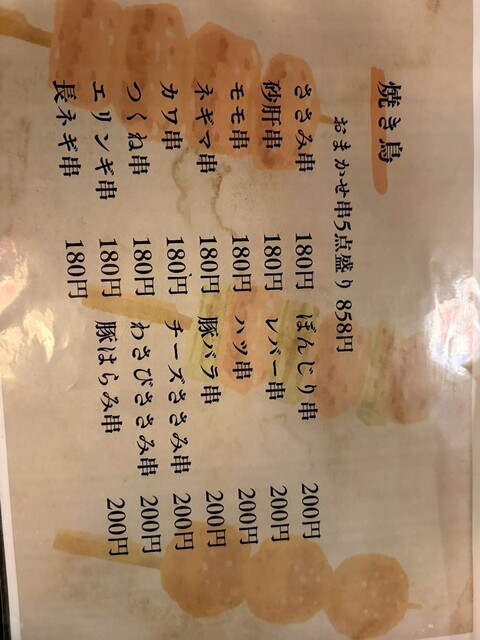 焼き鳥
おまかせ串5点盛り 858円
ささみ串 180円
砂肝串 180円
モモ串 180円
ネギマ串 180円
カワ串 180円
つくね串 180円
エリンギ串 180円
長ネギ串 180円
ぼんじり串 200円
レバー串 200円
ハツ串 200円
豚バラ串 200円
チーズささみ串 200円
わさびささみ串 200円
豚はらみ串 200円